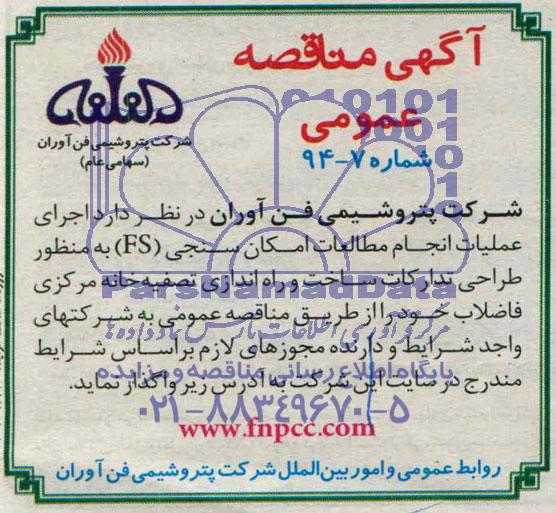 آگهی مناقصه
عمومی
شماره ۷-۹۴
شرکت پتروشیمی فن آوران
(سهامی عام)
شرکت پتروشیمی فن آوران در نظر دارد اجرای
عملیات انجام مطالعات امکان سنجی (FS) به منظور
طراحی تدارکات ساخت و راه اندازی تصفیه خانه مرکزی
فاضلاب خود را از طریق مناقصه عمومی به شرکتهای
واجد شرایط و دارنده مجوزهای لازم براساس شرایط
مندرج در سایت این شرکت به آدرس زیر واگذار نماید.
www.fnpcc.com
روابط عمومی و امور بین الملل شرکت پتروشیمی فن آوران
ParsNamadData
پایگاه اطلاع رسانی مناقصه و مزایده
۰۲۱-۸۸۳۴۹۶۷۰-۵